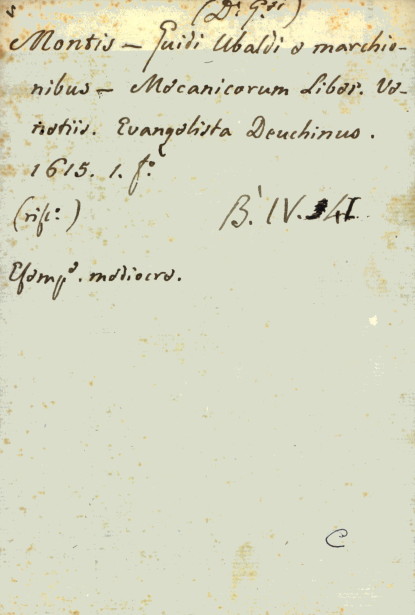 (D. G.)
Montis - Guidi Ubaldi e marchio-
nibus - Mecanicorum Liber. Ve-
netiis. Evangelista Deuchinus.
1615. 1. fo.
(rife.)
B. IV. 41
Esempe. mediocre.
C